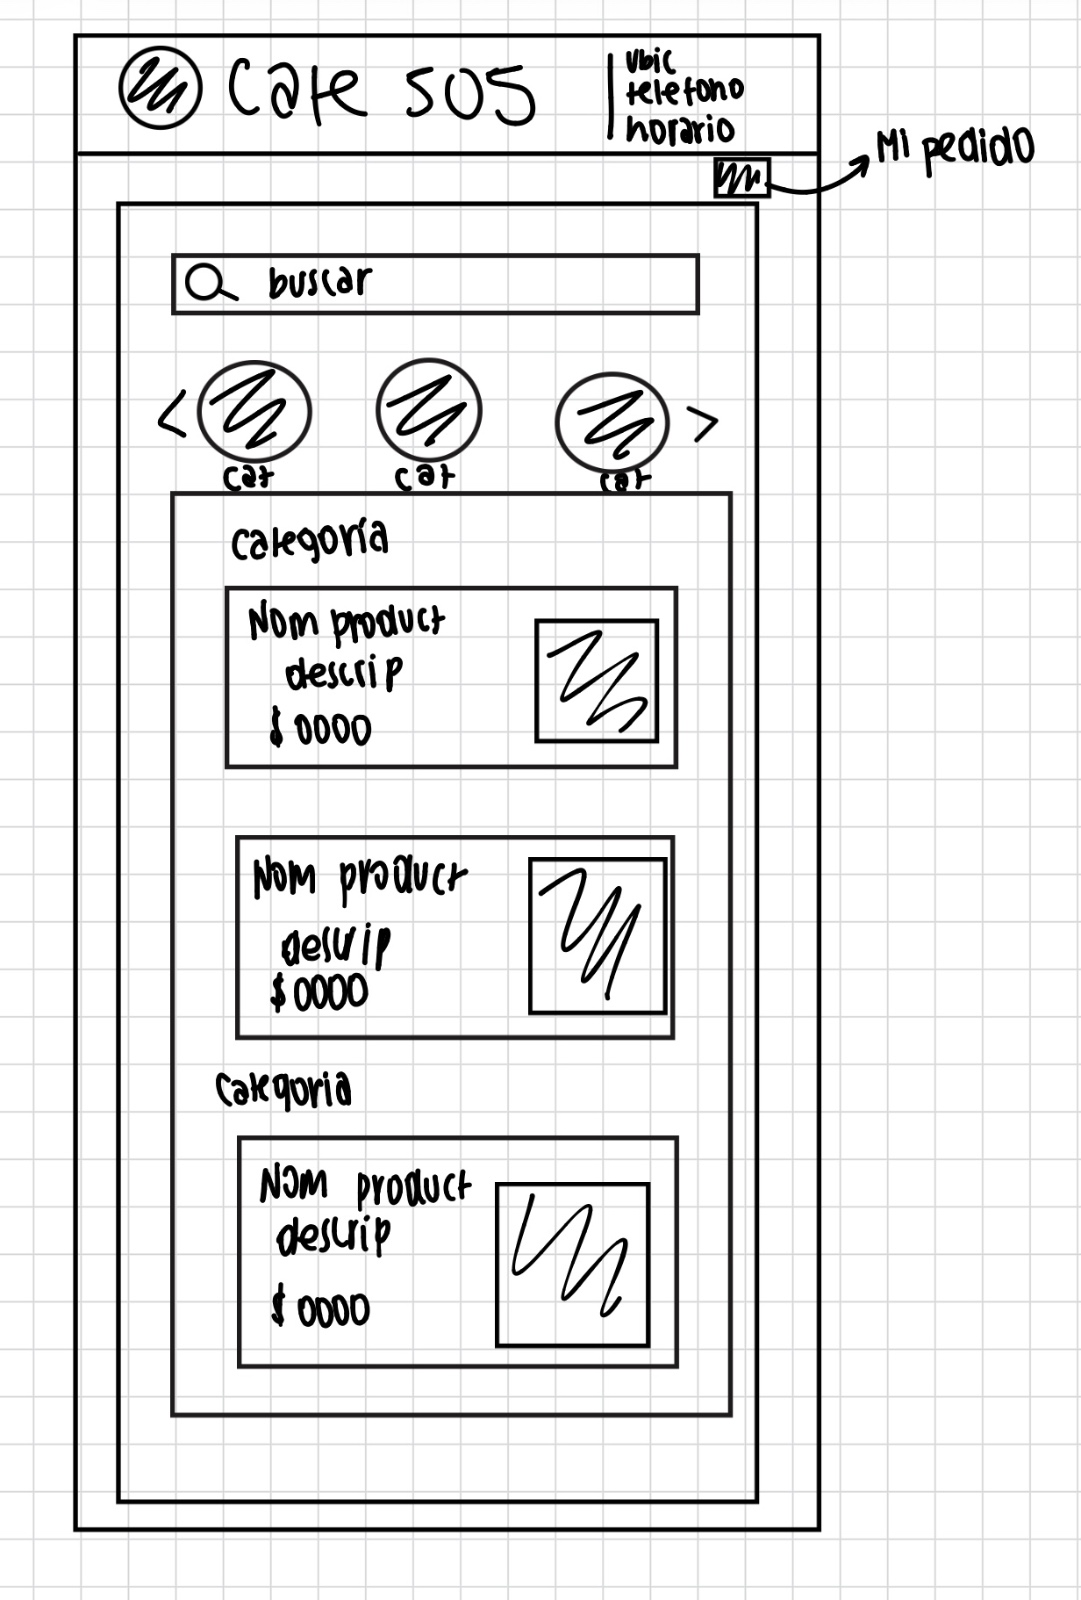 Cafe 505
ubic
telefono
horario
Mi pedido
buscar
cat
cat
cat
categoría
Nom product
descrip
$ 0000
Nom product
descrip
$ 0000
categoria
Nom product
descrip
$ 0000